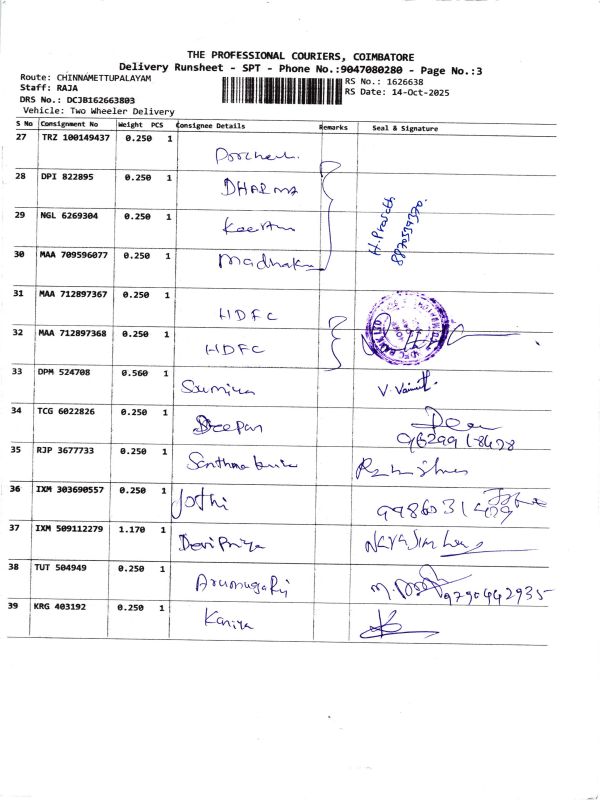 THE PROFESSIONAL COURIERS, COIMBATORE
Delivery Runsheet - SPT - Phone No.:9047080280 - Page No.:3
Route: CHINNAMETTUPALAYAM
RS No.: 1626638
Staff: RAJA
RS Date: 14-Oct-2025
DRS No.: DCJB162663803
Vehicle: Two Wheeler Delivery
S No Consignment No Weight PCS Consignee Details Remarks Seal & Signature
27 TRZ 100149437 0.250 1
28 DPI 822895 0.250 1 DHARMA
29 NGL 6269304 0.250 1
30 MAA 709596077 0.250 1
H. Prasath
31 MAA 712897367 0.250 1 HDFC
32 MAA 712897368 0.250 1 HDFC
33 DPM 524708 0.560 1 Soumiya
34 TCG 6022826 0.250 1 Deepan
35 RJP 3677733 0.250 1
36 IXM 303690557 0.250 1 Jothi
37 IXM 509112279 1.170 1 Devi Priya
38 TUT 504949 0.250 1 9790442935
39 KRG 403192 0.250 1 Kaniya